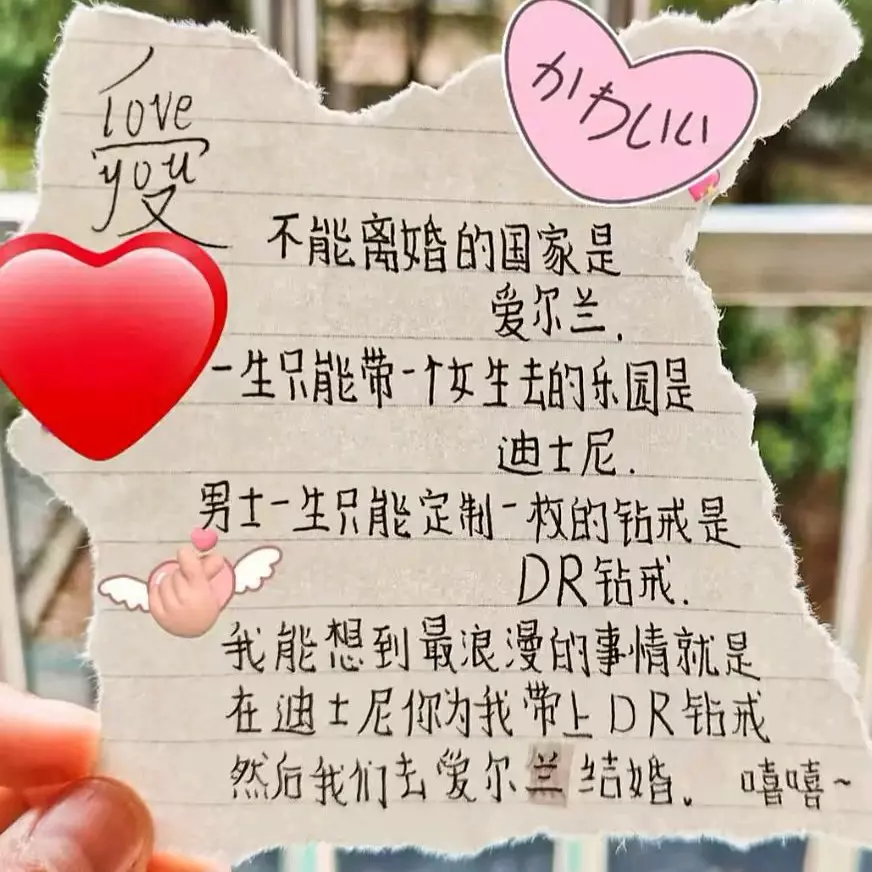 love
you
かわいい
不能离婚的国家是
爱尔兰.
一生只能带一个女生去的乐园是
迪士尼.
男士一生只能定制一枚的钻戒是
DR钻戒.
我能想到最浪漫的事情就是
在迪士尼你为我带上DR钻戒
然后我们去爱尔兰结婚。嘻嘻~